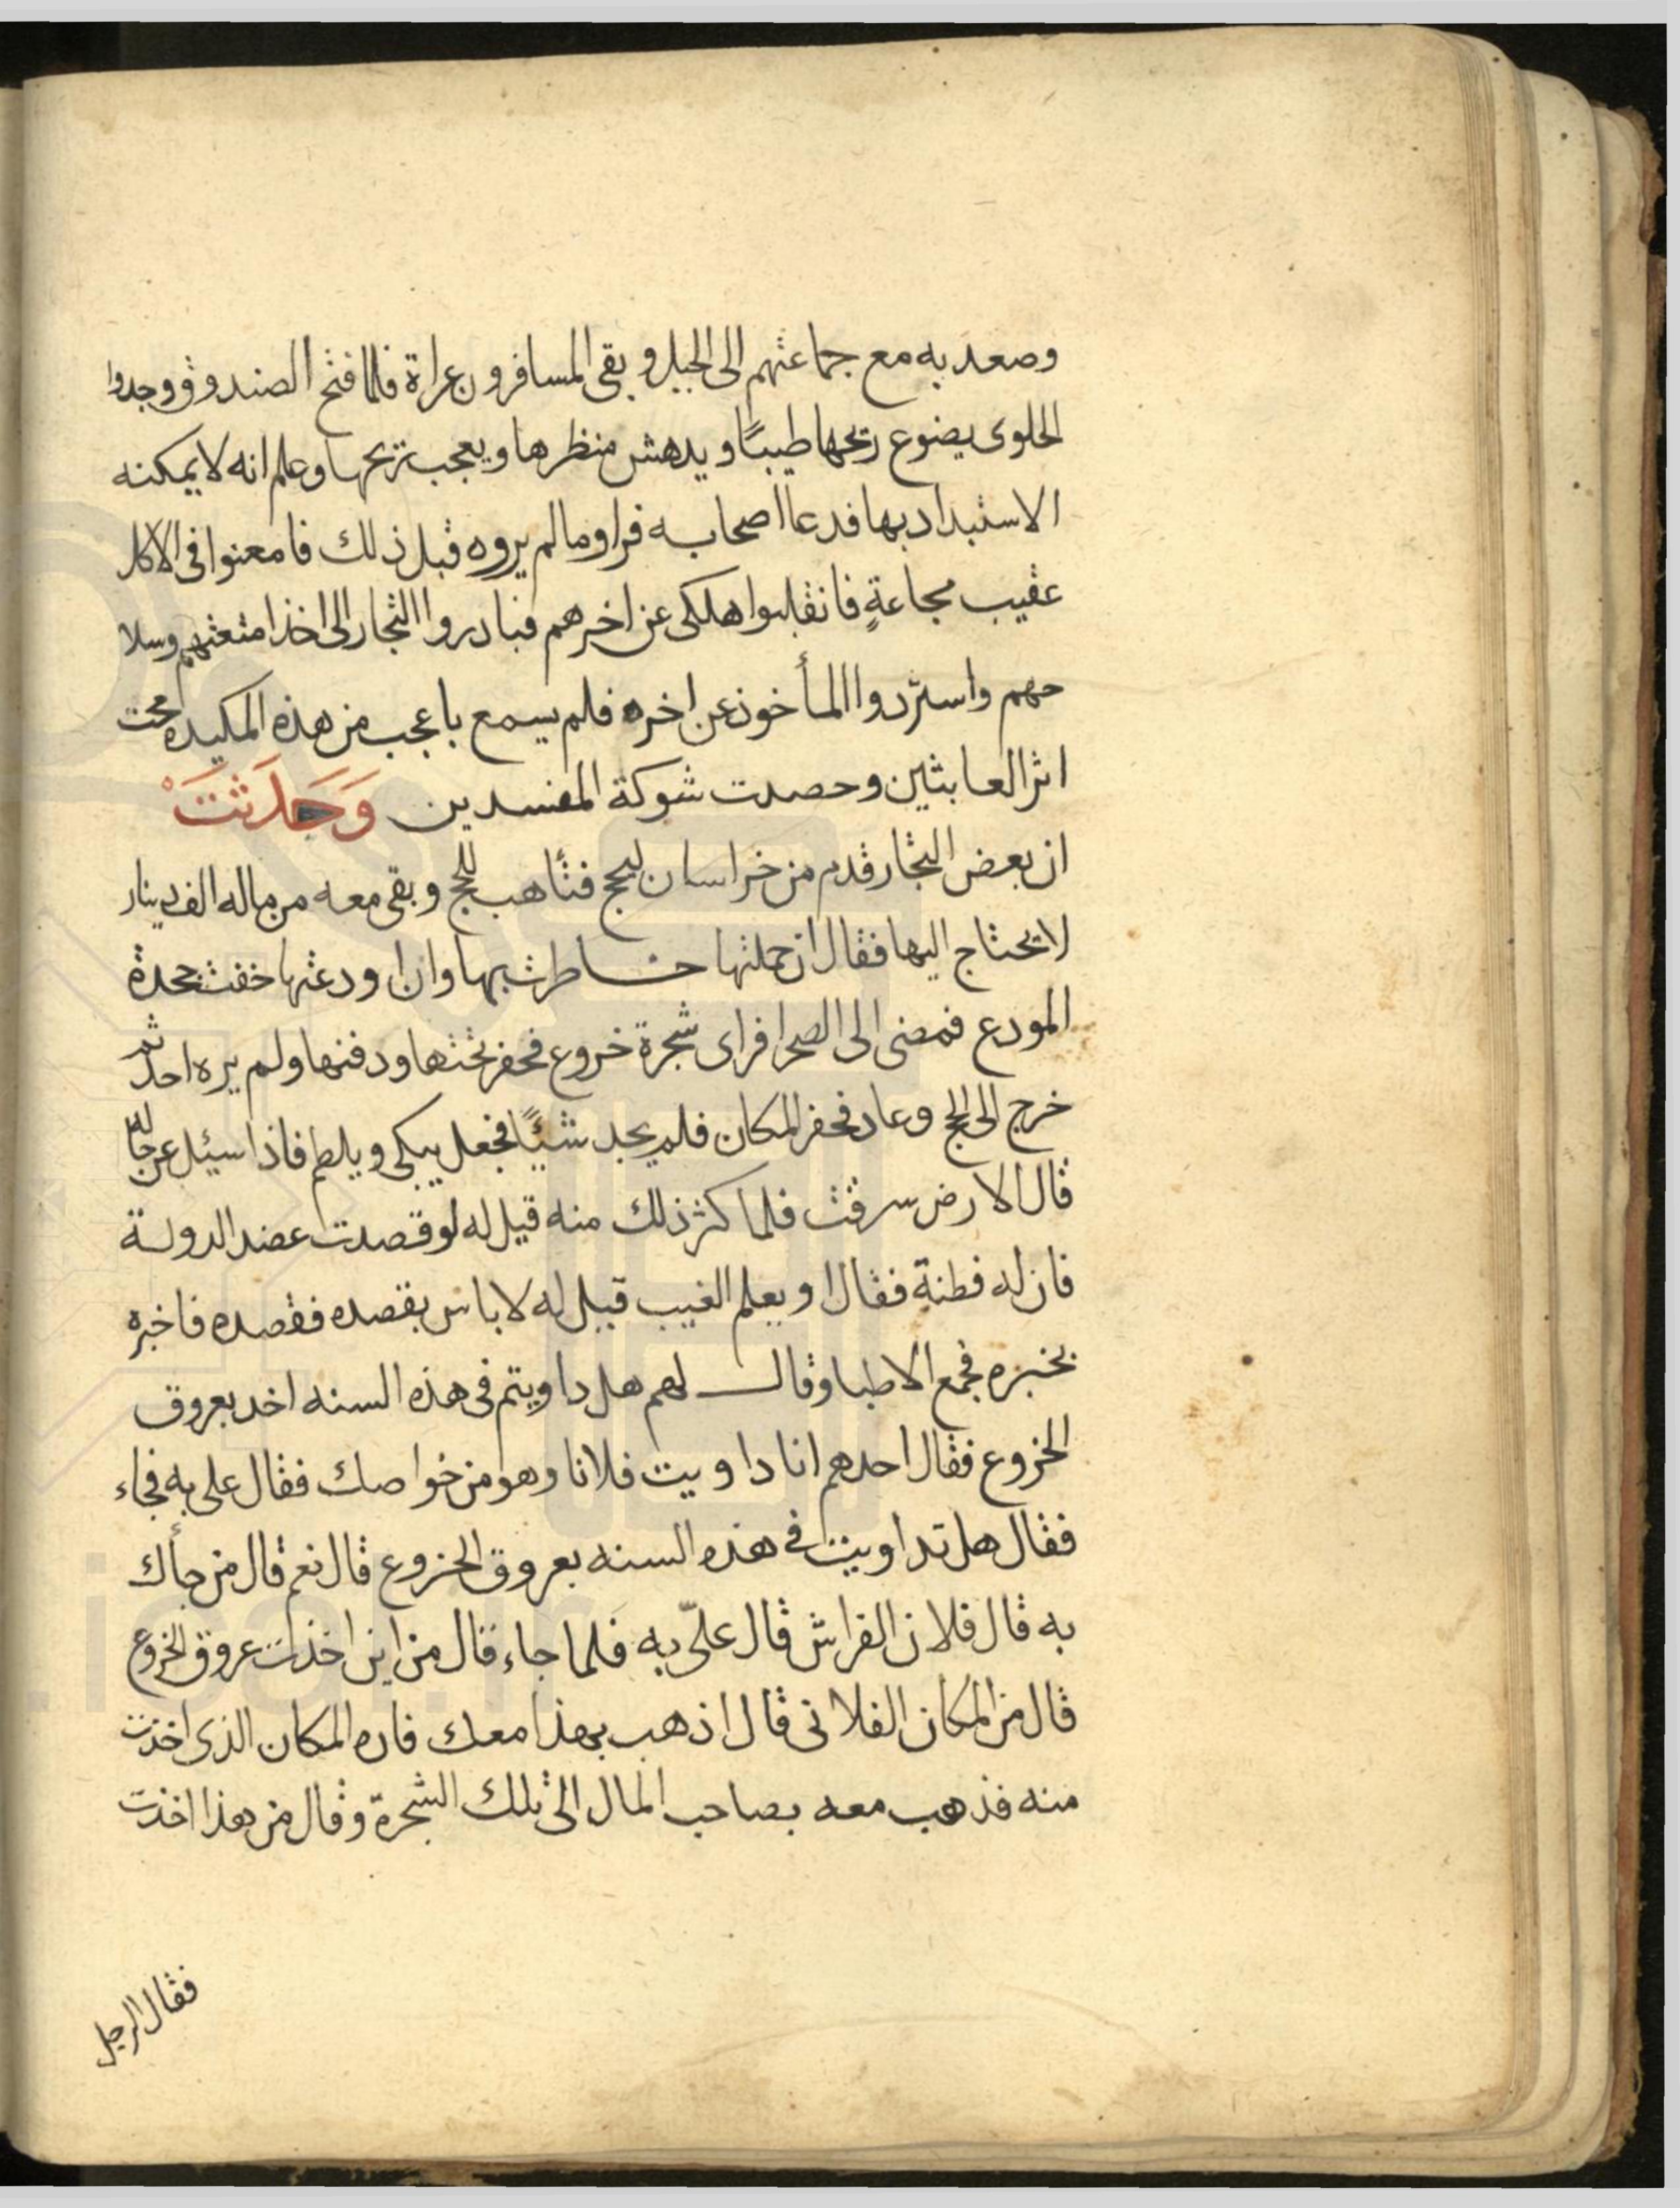 وصعد به مع جماعتهم الى الجبل و بقى المسافرون عراة فلما فتح الصندوق وجدوا
الحلوى يضوع ريحها طيبًا و يدهش منظرها و يعجب بريحها وعلم انه لا يمكنه
الاستبداد بها فدعا اصحابه فراوما لم يروه قبل ذلك فامعنوا فى الاكل
عقيب مجاعةٍ فانقلبوا هلكى عن اخرهم فبادروا التجار الى اخذ امتعتهم وسلا
حهم واستردوا المأخوذ عن اخره فلم يسمع باعجب من هذه المكيده محت
اثر العابثين وحصدت شوكة المفسدين وَحَدَثَتَ
ان بعض التجار قدم من خراسان ليحج فتأهب للحج و بقى معه من ماله الف دينار
لا يحتاج اليها فقال ان حملتها خاطرت بها وان اودعتها خفت جحدة
المودع فمضى الى الصحرا فراى شجرة خروع فحفر تحتها ودفنها ولم يره احد ثم
خرج الى الحج وعاد فحفر المكان فلم يجد شيئًا فجعل يبكى و يلطم فاذا سيئل عن حاله
قال الارض سرقت فلما كثر ذلك منه قيل له لو قصدت عضد الدولة
فان له فطنة فقال او يعلم الغيب قيل له لا باس بقصده فقصده فاخبره
بخبره فجمع الاطبا وقال لهم هل داويتم فى هذه السنه احد بعروق
الخروع فقال احدهم انا داويت فلانا وهو من خواصك فقال على به فجاء
فقال هل تداويت فى هذه السنه بعروق الخروع قال نعم قال من جأك
به قال فلان الفراش قال علىّ به فلما جاء قال من اين اخذت عروق الخروع
قال من المكان الفلانى قال اذهب بهذا معك فاره المكان الذى اخذت
منه فذهب معه بصاحب المال الى تلك الشجرة وقال من هذا اخذت
فقال الرجل